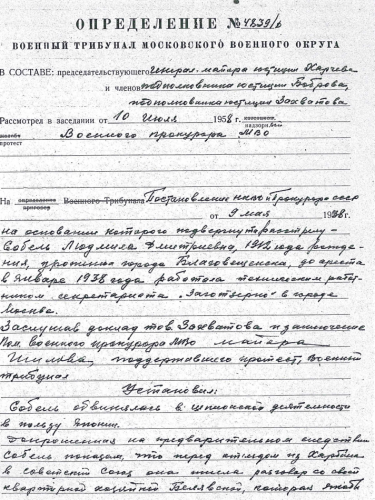 ОПРЕДЕЛЕНИЕ № 4239/о
ВОЕННЫЙ ТРИБУНАЛ МОСКОВСКОГО ВОЕННОГО ОКРУГА
В СОСТАВЕ: председательствующего генерал-майора юстиции Харчева
и членов подполковника юстиции Боброва,
подполковника юстиции Захватова
Рассмотрел в заседании от 10 июля 1958 г.
протест Военного прокурора МВО
На Военного Трибунала Постановление НКВД и Прокурора СССР
от 9 мая 1938 г.
на основании которого подвергнута расстрелу —
Собель Людмила Дмитриевна, 1912 года рожде-
ния, уроженка города Благовещенска, до ареста
в январе 1938 года работала техническим работ-
ником секретариата „Заготзерно" в городе
Москва.
Заслушав доклад тов Захватова и заключение
Пом. военного прокурора МВО майора
поддержавшего протест, Военный
трибунал
Установил:
Собель обвинялась в шпионской деятельности
в пользу Японии.
Допрошенная на предварительном следствии
Собель показала, что перед отъездом из Харбина
в советский союз она имела разговор со своей
квартирной хозяйкой Белявской, которая якобы